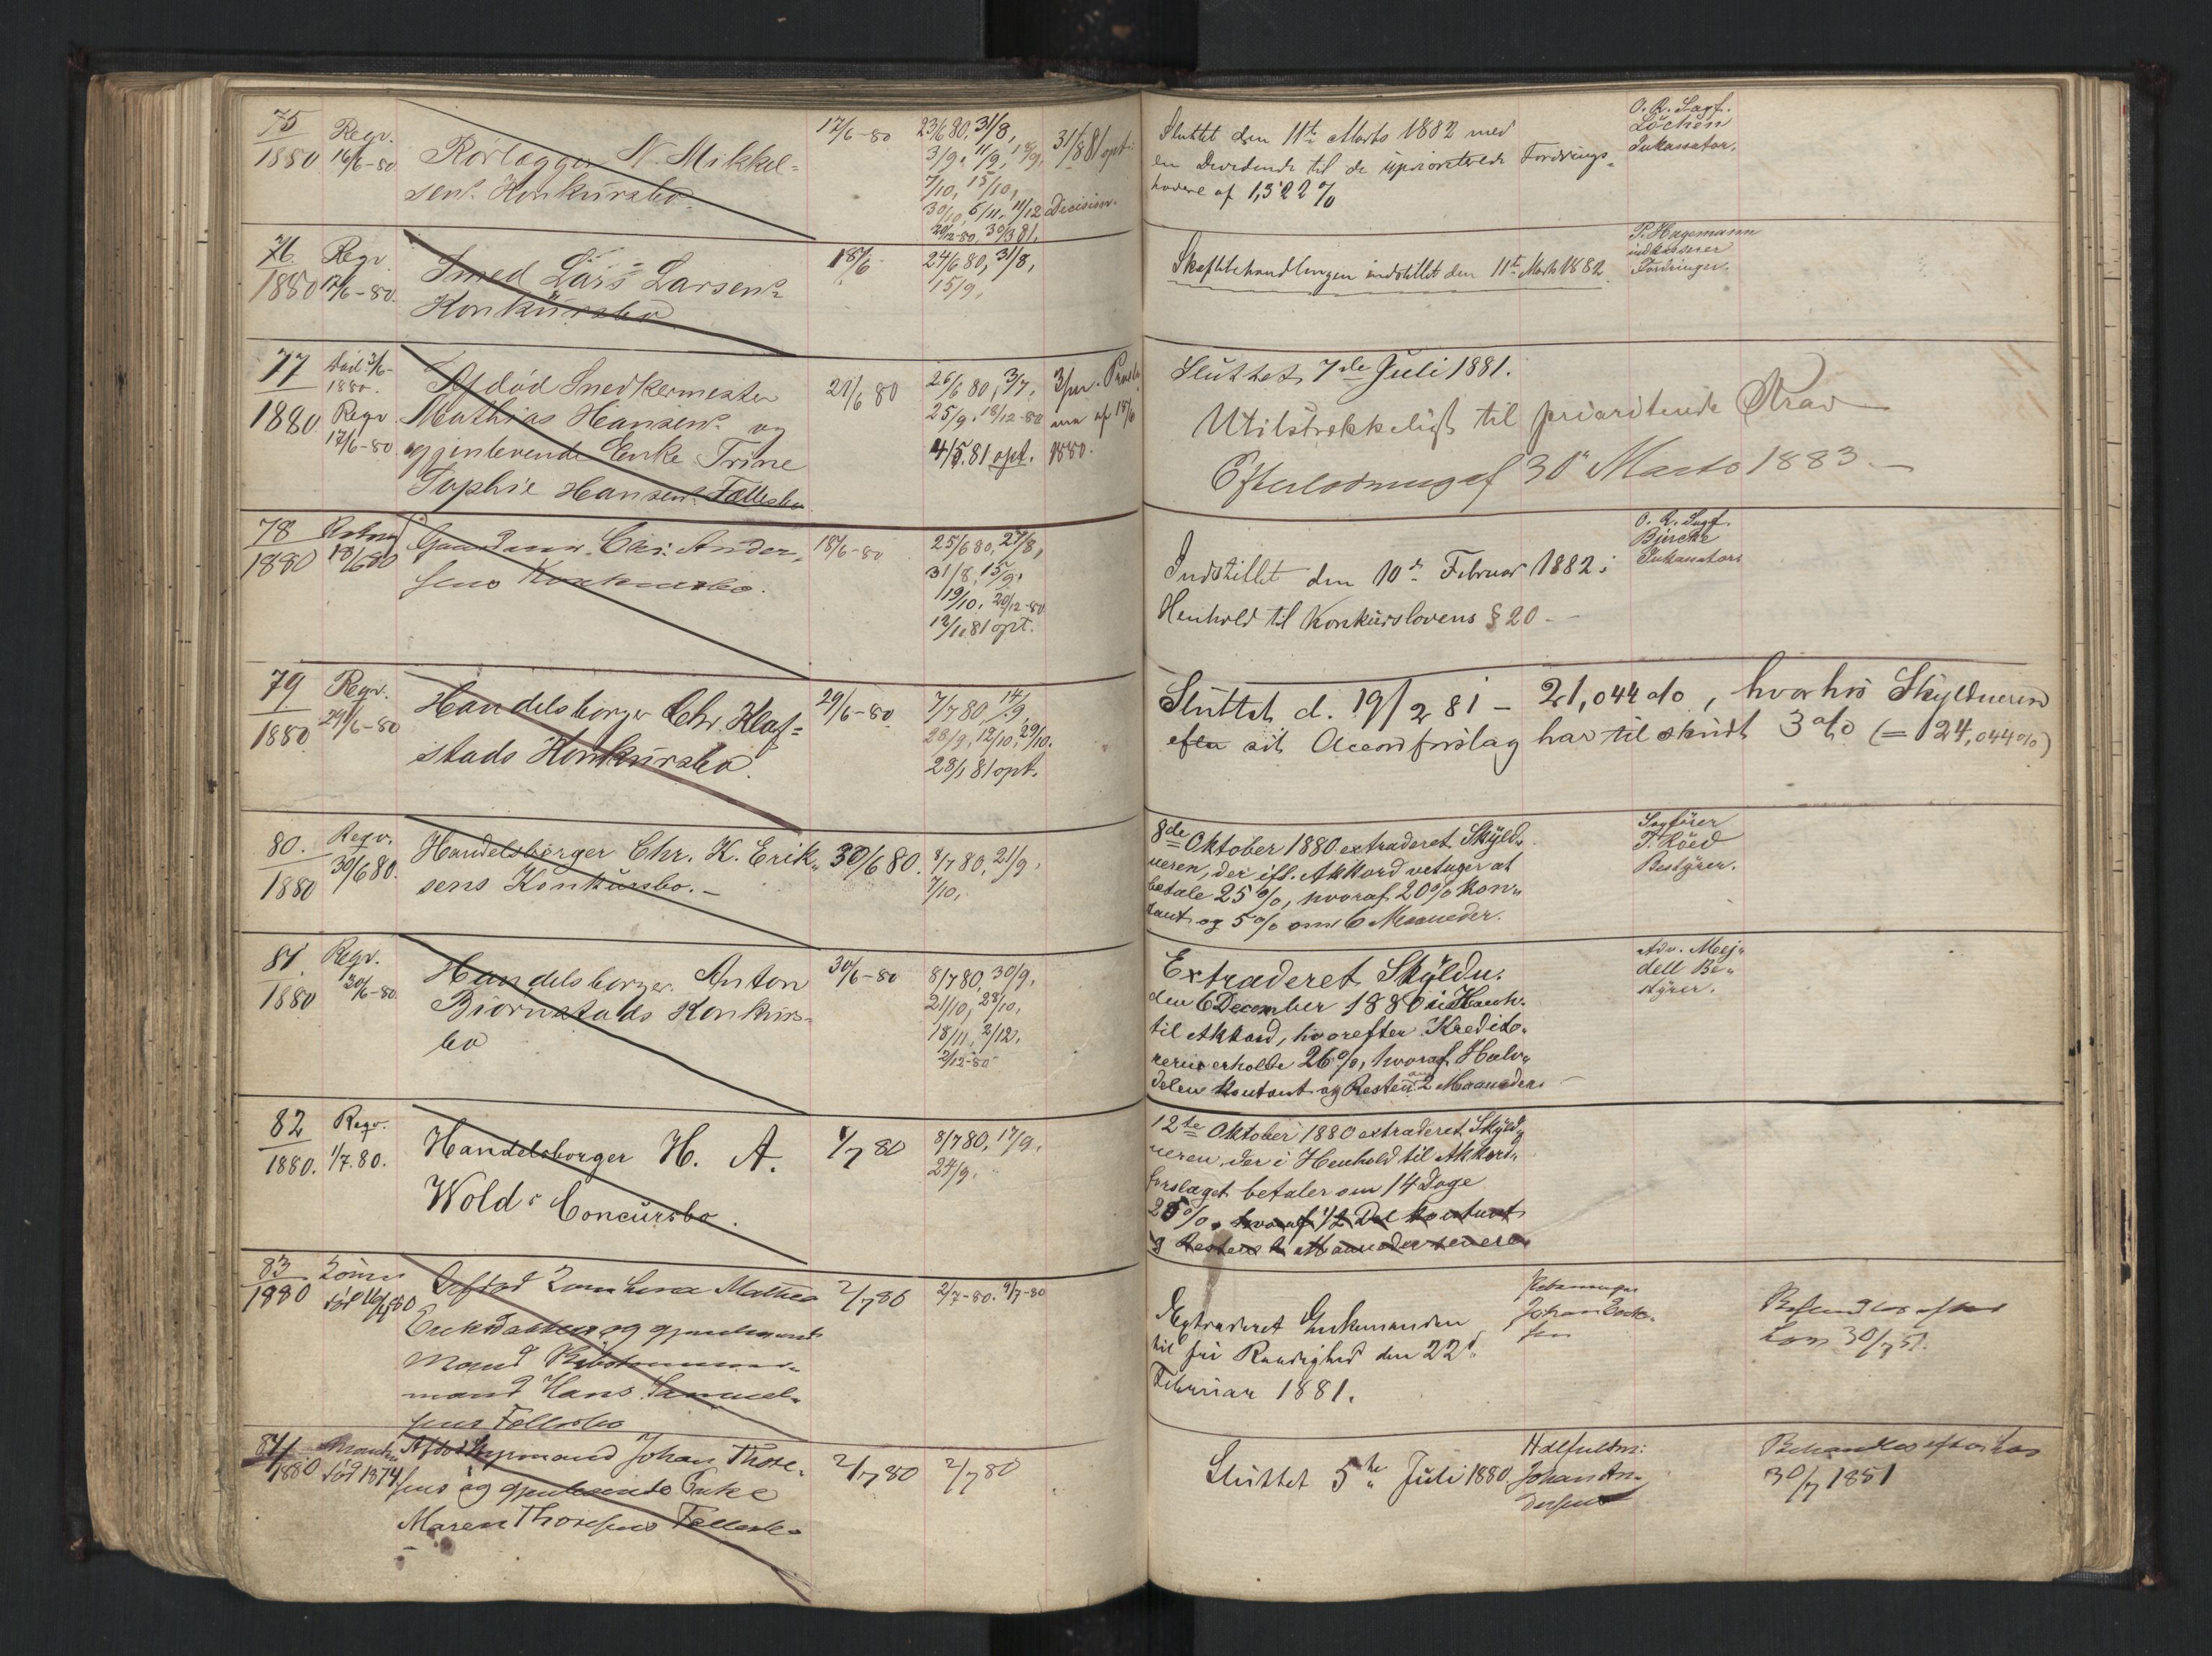 75
1880
Reqv.
16/6-80
Rørlægger N. Mikkel=
sens Konkursbo.
17/6-80
23/6 80, 3/8,
3/9, 11/9, 18/9,
7/10, 15/10,
30/10, 6/11, 11/12
20/12-80, 30/3 81.
31/8 81 opt.
Decision.
Sluttet den 11te Marts 1882 med
en Dividende til de uprioriterede Fordrings-
havere af 1,522 %
O. R. Sagf.
Löchen
Inkassator.
76.
1880
Reqv.
17/6-80.
Smed Lars Larsens
Konkursbo
18/6
24/6 80, 31/8,
15/9,
Skiftebehandlingen indstillet den 11te Marts 1882.
P. Hagemann
indkasserer
Fordringer.
77
1880
Død 3/6-
1880.
Reqv.
17/6-80
Afdød Snedkermester
Mathias Hansens og
gjenlevende Enke Trine
Sophie Hansens Fællesbo
21/6 80
26/6 80, 3/7,
25/9, 18/12-80
4/5.81 opt.
3/m. Procla
ma af 18/6
1880.
Sluttet 7de Juli 1881.
Utilstrekkeligt til prioriterede Krav
Efterlodning af 30 Marts 1883.
78
1880
18/6 80
Gaardmr. Chr: Ander-
sens Konkursbo.
18/6-80
25/6 80, 27/8,
31/8, 15/9,
19/10, 20/12-80
12/1 81 opt.
Indstillet den 10de Februar 1882 i
Henhold til Konkurslovens § 20 -
O. R. Sagf.
Bjirche
Inkassator
79.
1880
Reqv.
29/6-80
Handelsborger Chr. Klaf=
stads Konkursbo.
29/6-80
7/7 80, 14/9,
28/9, 12/10, 29/10.
28/1 81 opt.
Sluttet d. 19/2 81 - 21,044 %, hvorhos Skyldneren
efter sit Accordforslag har tilskudt 3 % (= 24,044 %)
80.
1880
Reqv.
30/6 80.
Handelsborger Chr. K. Erik-
sens Konkursbo. -
30/6 80.
8/7 80, 21/9,
7/10,
8de Oktober 1880 extraderet Skyld-
neren, der ifl. Akkord vetager at
betale 25 %, hvoraf 20 % kon-
tant og 5 % om 6 Maaneder.
Sagfører
T. Höed
Bestyrer.
81.
1880
Reqv.
30/6-80.
Handelsborger Anton
Bjørnstads Konkurs-
bo
30/6-80
8/7 80, 30/9,
21/10, 28/10,
18/11, 2/12,
2/12-80
Extraderet Skyldn.
den 6 December 1880 i Henh.
til Akkord, hvorefter Kredito-
rerne erholde 26 %, hvoraf Halv-
delen kontant og Resten om 2 Maaneder.
Adv. Mej-
dell Be-
styrer.
82
1880.
Reqv.
1/7.80.
Handelsborger H. A.
Wolds Concursbo.
1/7 80
8/7 80, 17/9,
24/9.
12te Oktober 1880 extraderet Skyld-
neren, der i Henhold til Akkord-
forslaget betaler om 14 Dage
25 %, hvoraf 1/2 Del kontant
og Resten 2 Maaneder senere
83
1880
Konen
død 16/6 80
Afdød Kone Lena Mathea
Eriksdatters og gjenlevende
Mand
mand Hans Samuel-
sens Fællesbo
2/7 80
2/7-80. 9/7-80
Extraderet Enkemanden
til fri Raadighed den 22de
Februar 1881.
Behandles efter
Lov 30/7 51.
84
1880
Manden
død 1874.
Afdød Johan Thore-
sens og gjenlevende Enke
Maren Thoresens Fællesbo
2/7 80
2/7 80
Sluttet 5te Juli 1880.
Johan An-
dersen
Behandles efter Lov
30/7 1851